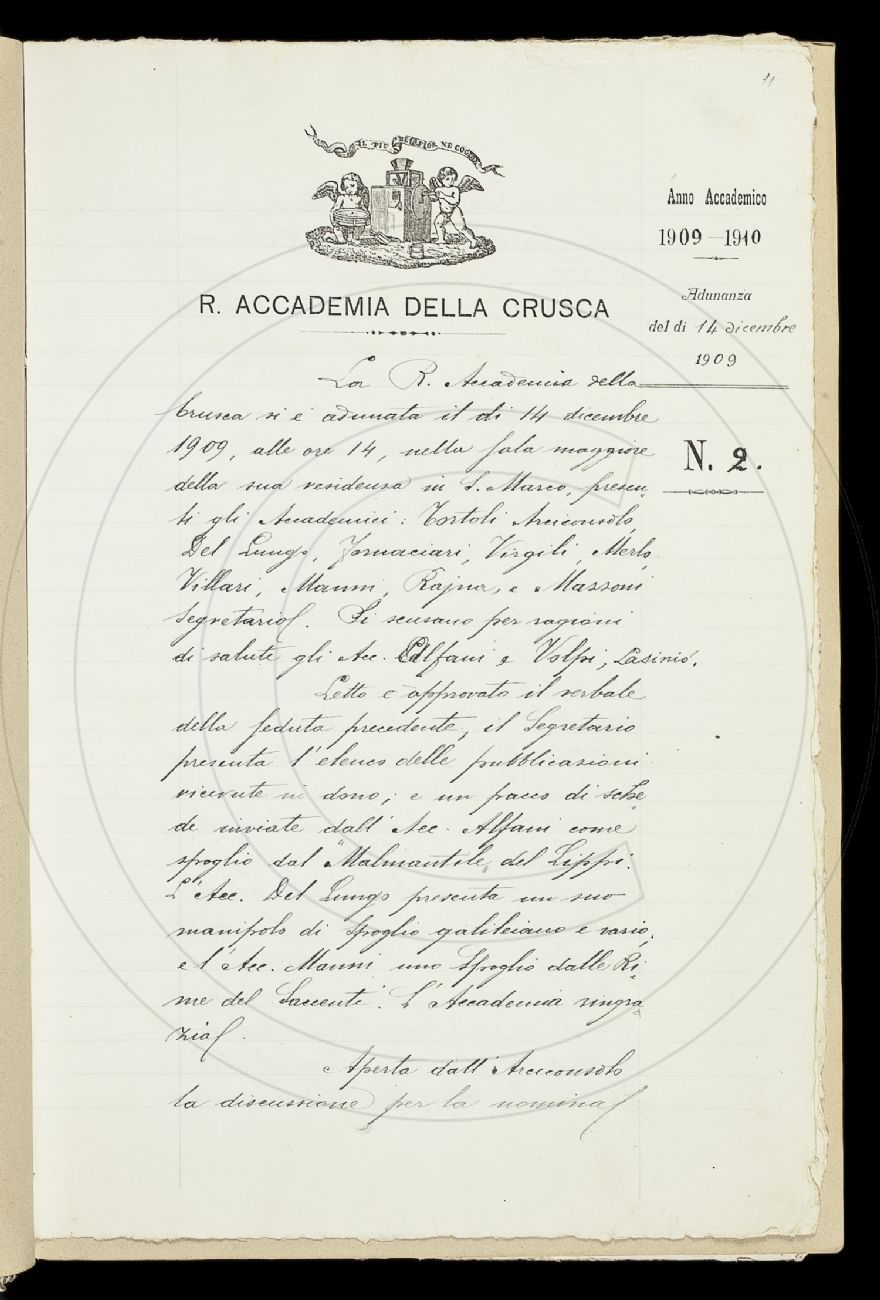 11
IL PIU BEL FIOR NE COGLIE
Anno Accademico
1909-1910
R. ACCADEMIA DELLA CRUSCA
Adunanza
del dì 14 dicembre
1909
N. 2.
La R. Accademia della
Crusca si è adunata il dì 14 dicembre
1909, alle ore 14, nella sala maggiore
della sua residenza in S. Marco, presen-
ti gli Accademici: Tortoli Arciconsolo,
Del Lungo, Fornaciari, Virgili, Merlo,
Villari, Manni, Rajna, e Mazzoni
Segretario. Si scusano per ragioni
di salute gli Acc. Alfani e Volpi, Lasinio.
Letto e approvato il verbale
della seduta precedente, il Segretario
presenta l'elenco delle pubblicazioni
ricevute in dono; e un pacco di sche
de inviate dall'Acc. Alfani come
spoglio dal "Malmantile" del Lippi.
L'Acc. Del Lungo presenta un suo
manipolo di spoglio galileiano e vario;
e l'Acc. Manni uno spoglio dalle Ri-
me del Saccenti. L'Accademia ringra-
zia.
Aperta dall'Arciconsolo
la discussione per la nomina